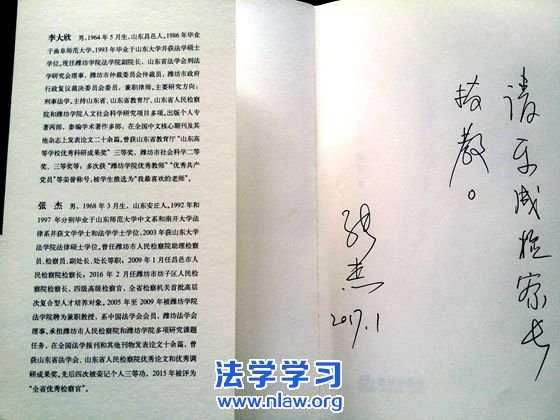 李大欣　男，1964年5月生，山东昌邑人。1986年毕业
于曲阜师范大学，1993年毕业于山东大学并获法学硕士
学位。现任潍坊学院法学院副院长，山东省法学会刑法
学研究会理事，潍坊市仲裁委员会仲裁员，潍坊市政府
行政复议裁决委员会委员，兼职律师。主要研究方向：
刑事法学。主持山东省、省教育厅、山东省人民检察院
院和潍坊学院人文社会科学研究项目多项，出版个人专
著两部，参编学术著作多部，在全国中文核心期刊及其
他杂志上发表论文二十余篇。曾获山东省教育厅“山东高
等学校优秀科研成果奖”三等奖，潍坊市社会科学二等
奖、三等奖等；多次获“潍坊学院优秀教师”“优秀共产
党员”等荣誉称号，被学生推选为“我最喜欢的老师”。
张　杰　男，1968年3月生，山东安丘人。1992年
和1997年分别毕业于山东师范大学中文系和南开大学法
律系并获文学学士和法学学士学位，2003年获山东大学
法学院法律硕士学位。曾任潍坊市人民检察院助理检察
员、检察员、副处长、处长等职；2009年1月任昌邑市人
民检察院检察长；2016年2月任潍坊市坊子区人民检察
院检察长，四级高级检察官，全省检察机关首批高层
次复合型人才培养对象。2005年至2009年被潍坊学院法
学院聘为兼职教授，系中国法学会会员，潍坊法学会
理事。承担潍坊市人民检察院和潍坊学院多项研究课题
任务，在全国法学报刊和其他刊物发表论文十余篇，曾
获山东省法学会、山东省人民检察院优秀论文和优秀调
研成果奖。先后四次被荣记个人三等功，2015年被评为
“全省优秀检察官”。
请
成检察长
教。
张杰
2017.1
法学学习
www.nlaw.org